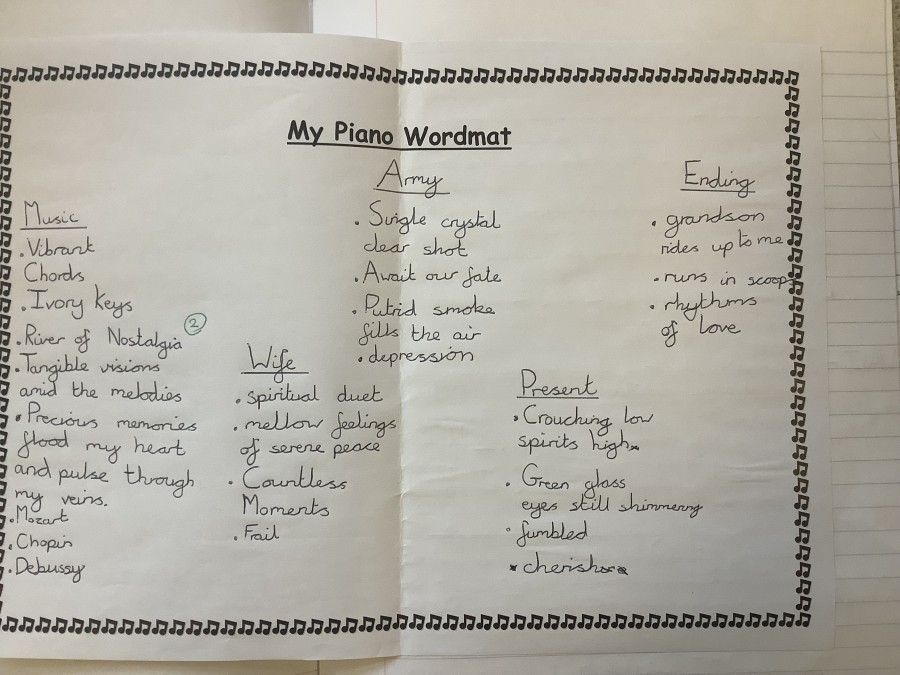 My Piano Wordmat
Music
. Vibrant
Chords
. Ivory Keys
. River of Nostalgia 2
. Tangible visions
amid the melodies
. Precious memories
flood my heart
and pulse through
my veins.
. Mozart
. Chopin
. Debussy
Wife
. spiritual duet
. mellow feelings
of serene peace
. Countless
Moments
. Frail
Army
. Single crystal
clear shot
. Await our fate
. Putrid smoke
fills the air
. depression
Present
. Crouching low
spirits high
. Green glass
eyes still shimmering
. fumbled
. cherish
Ending
. grandson
rides up to me
. runs in scoops
. rhythms
of love